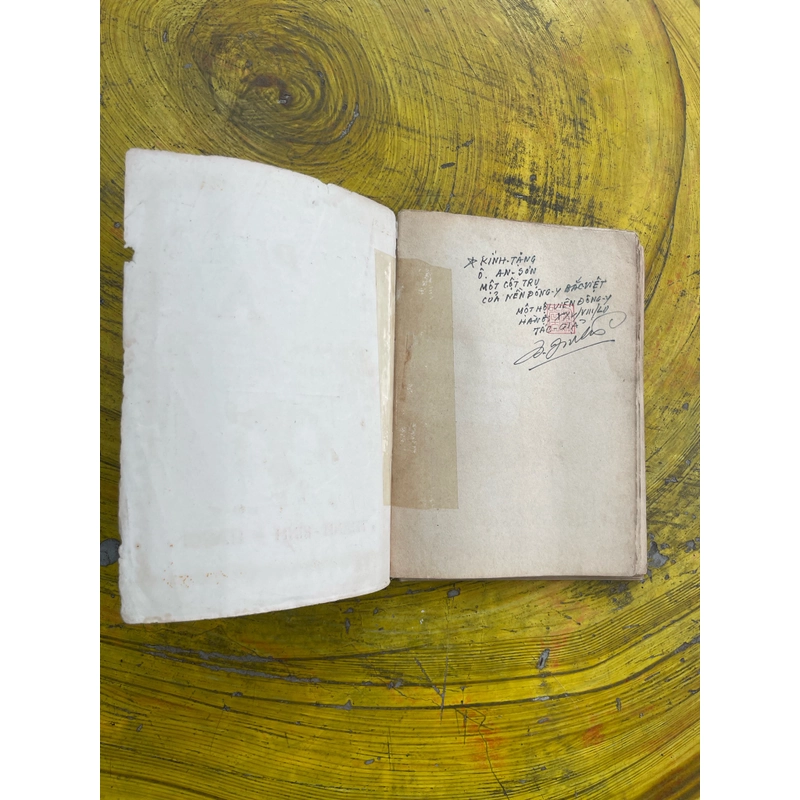 KÍNH-TẶNG
Ô. AN-SƠN
MỘT CỘT TRỤ
CỦA NỀN ĐÔNG-Y BẮC VIỆT
MỘT HỘI VIÊN ĐÔNG-Y
HÀ NỘI XXV/VIII/60
TÁC-GIẢ